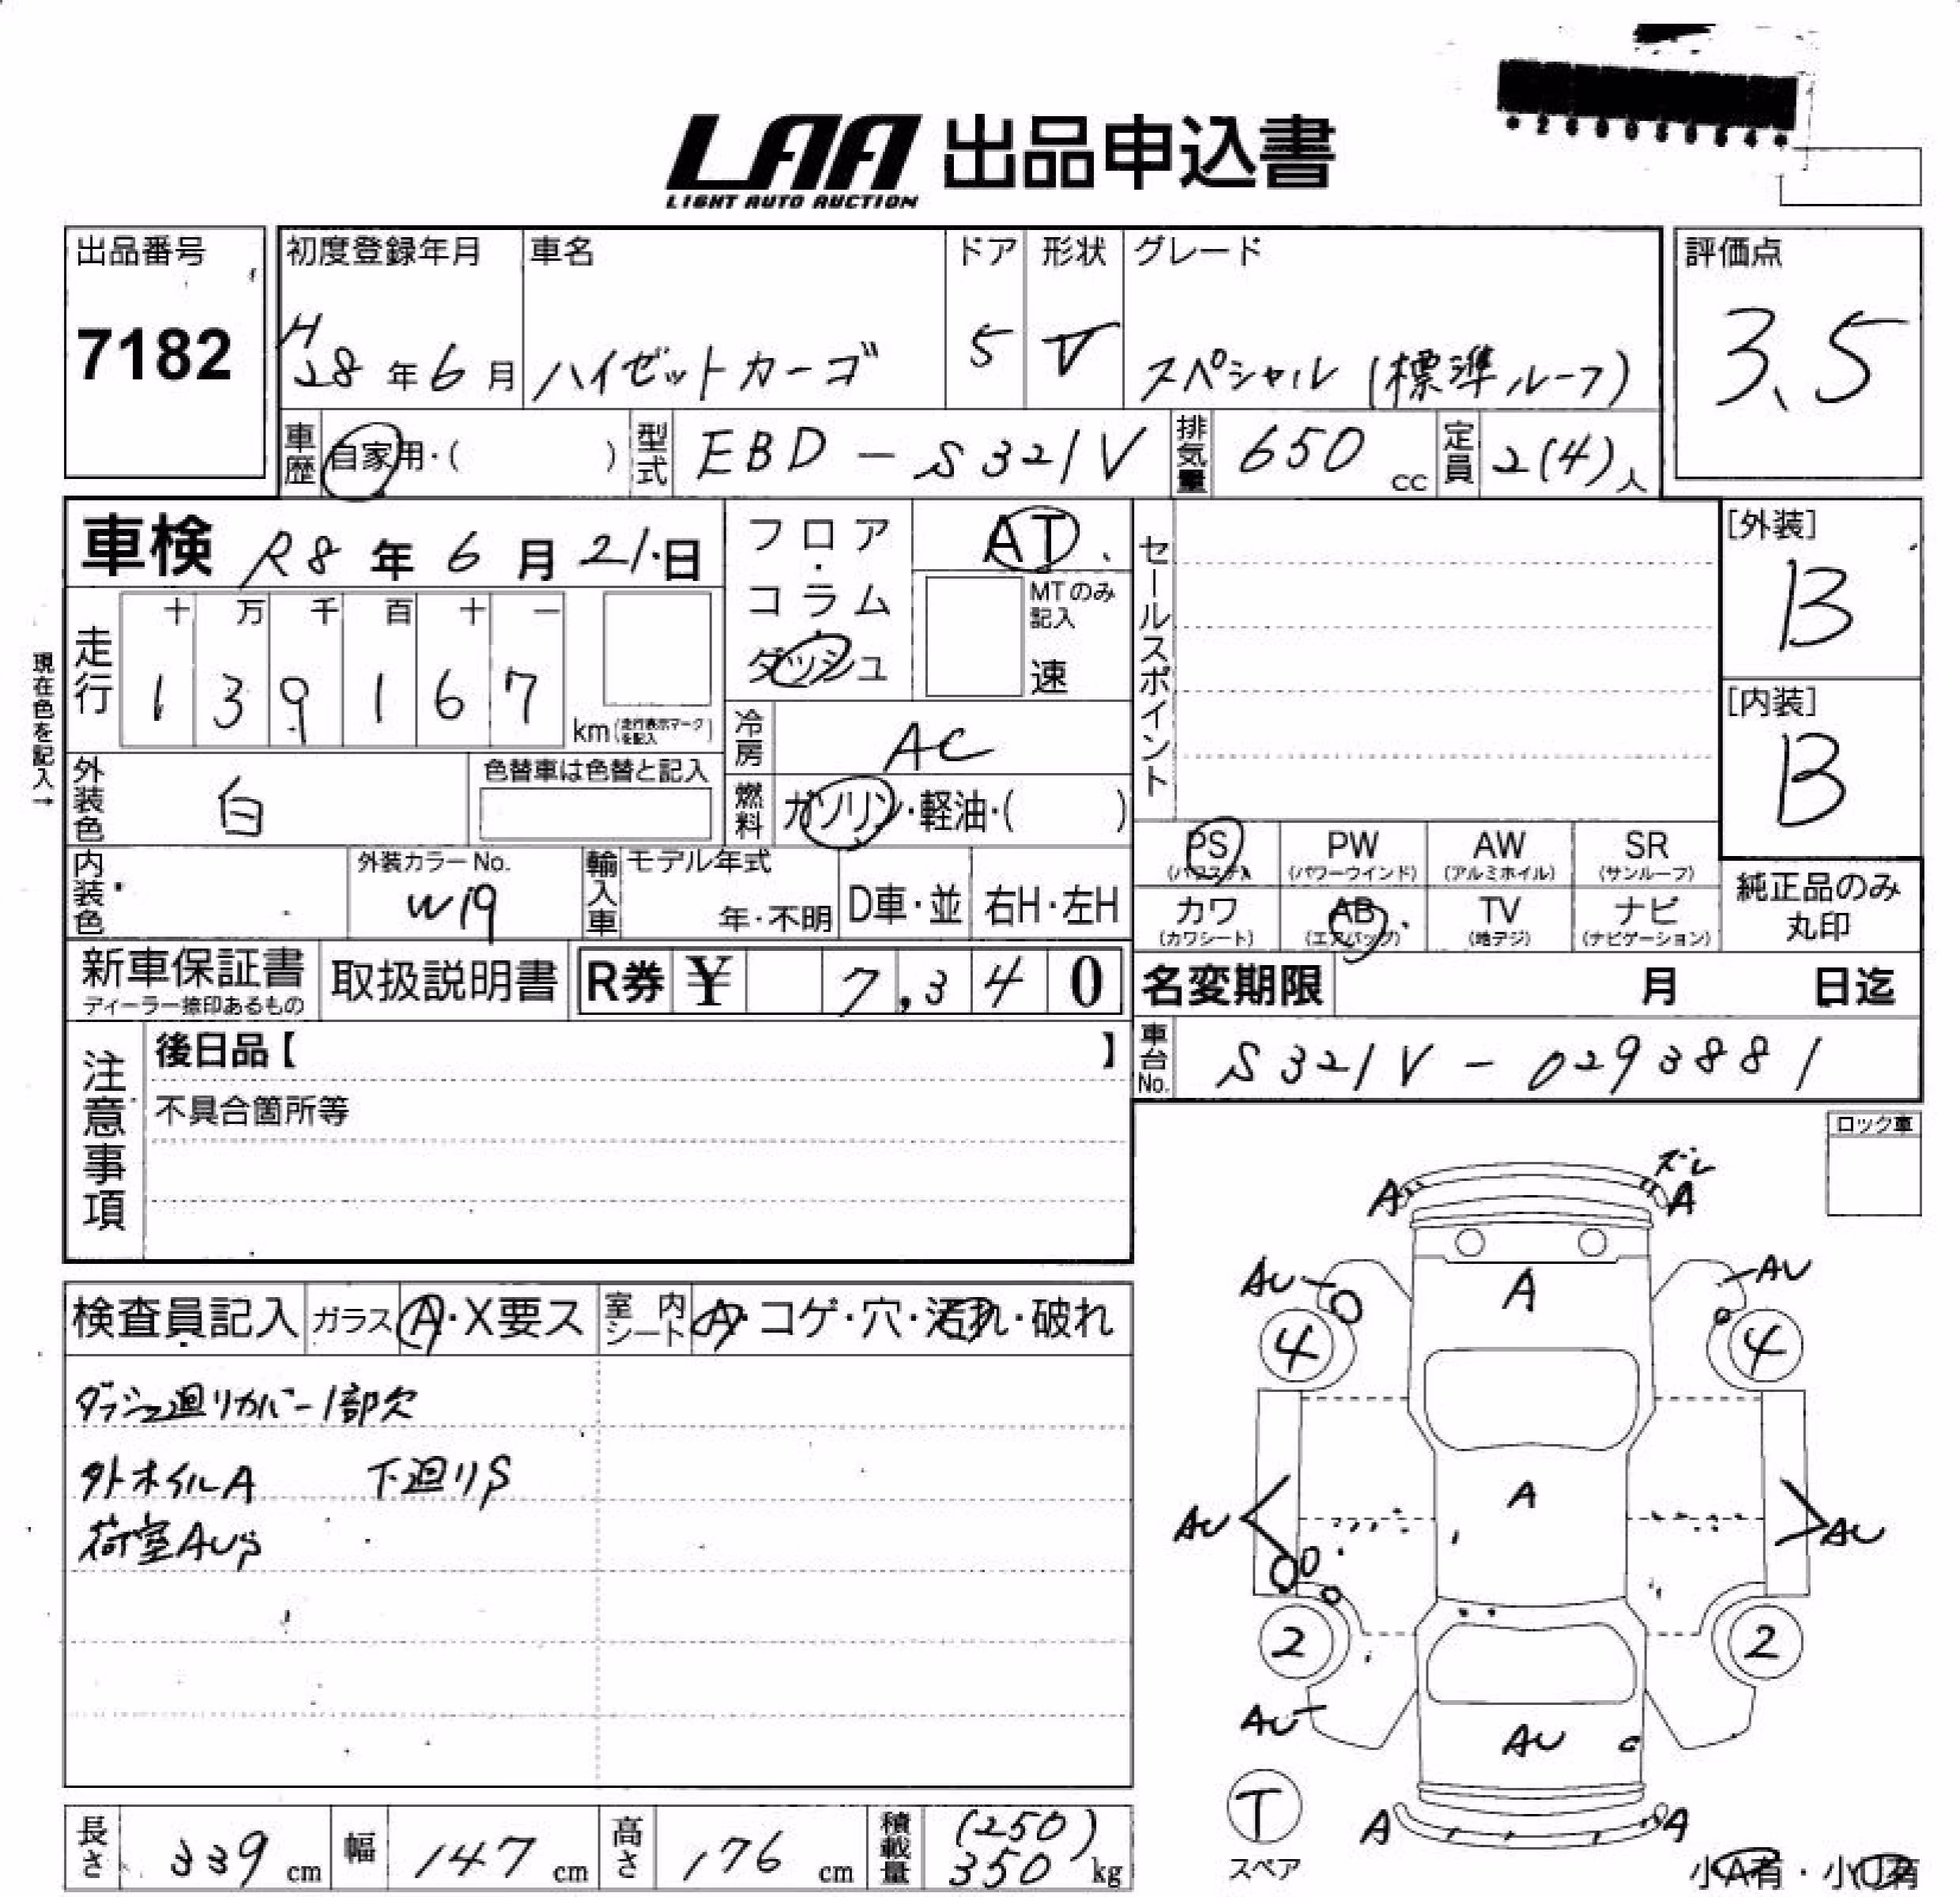 *26003064*
LAA 出品申込書
LIGHT AUTO AUCTION
出品番号 初度登録年月 車名 ドア 形状 グレード 評価点
7182 H28年6月 ハイゼットカーゴ 5 V スペシャル(標準ルーフ) 3.5
車歴 自家用・( ) 型式 EBD-S321V 排気量 650 cc 定員 2(4)人
車検 R8年6月21日 フロア・コラム・ダッシュ AT
MTのみ記入 速
セールスポイント
[外装] B
走行 十 万 千 百 十 一
1 3 9 1 6 7 km(走行表示マークを記入)
現在色を記入→
[内装] B
冷房 AC
外装色 白 色替車は色替と記入
燃料 ガソリン・軽油・( )
PS (パワステ) PW (パワーウインド) AW (アルミホイル) SR (サンルーフ)
カワ (カワシート) AB (エアバッグ) TV (地デジ) ナビ (ナビゲーション)
純正品のみ丸印
内装色 外装カラーNo. W19 輸入車 モデル年式 年・不明 D車・並 右H・左H
新車保証書 ディーラー捺印あるもの 取扱説明書 R券 ¥ 7,340 名変期限 月 日迄
注意事項 後日品【 】
車台No. S321V-0293881
不具合箇所等
ロック車
検査員記入 ガラス A・X要ス 室内シート A・コゲ・穴・汚れ・破れ
ダッシュ廻りカバー1部欠
外ホイルA 下廻りS
荷室AUS
ズレ
A A
AU AU
A
4 4
A
AU AU
2 2
AU
AU
T
スペア
A A
小A有・小U有
長さ 339 cm 幅 147 cm 高さ 176 cm 積載量 (250) 350 kg